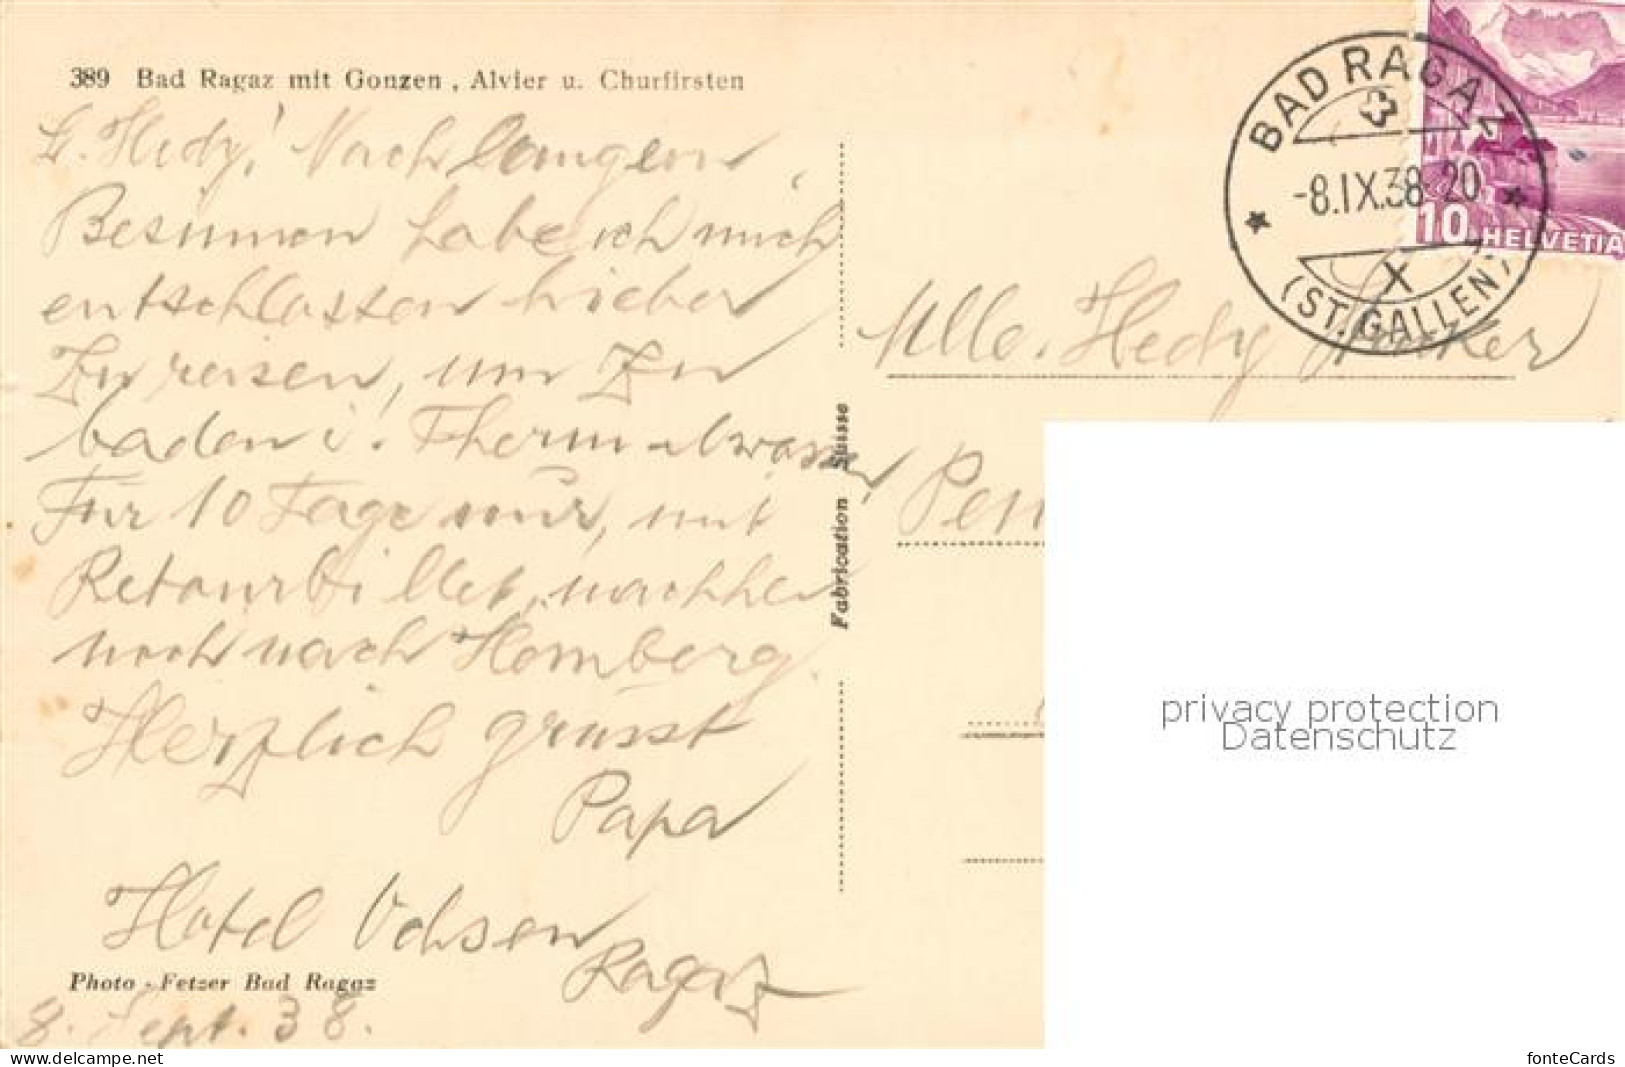 389 Bad Ragaz mit Gonzen, Alvier u. Churfirsten
L. Hedy! Nach langem
Besinnen habe ich mich
entschlossen hieher
zu reisen, um zu
baden i. Thermalwasser
Für 10 Tage nur, mit
Retourbillet, nachher
noch nach Homberg.
Herzlich grüsst
Papa
Hotel Ochsen
Ragaz
Photo - Fetzer Bad Ragaz
8. Sept. 38.
Fabrication Suisse
BAD RAGAZ
-8.IX.38-20
X
(ST. GALLEN)
10 HELVETIA
Mlle. Hedy
Pen
privacy protection
Datenschutz
www.delcampe.net
fonteCards